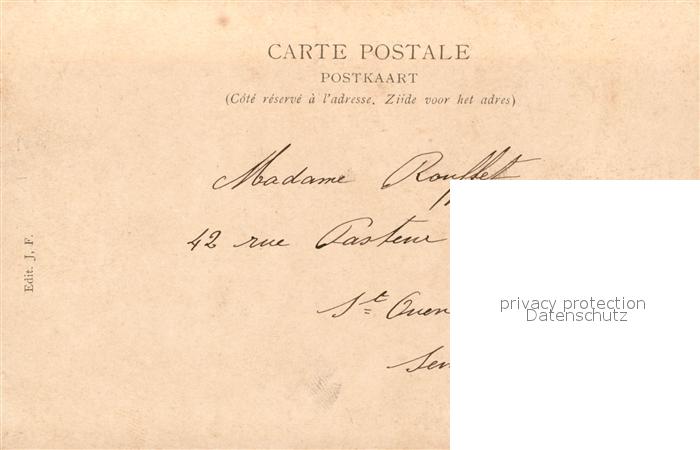 CARTE POSTALE
POSTKAART
(Côté réservé à l'adresse. Zijde voor het adres)
Madame Rousset
42 rue Pasteur
St Ouen
Edit. J. F.
privacy protection
Datenschutz